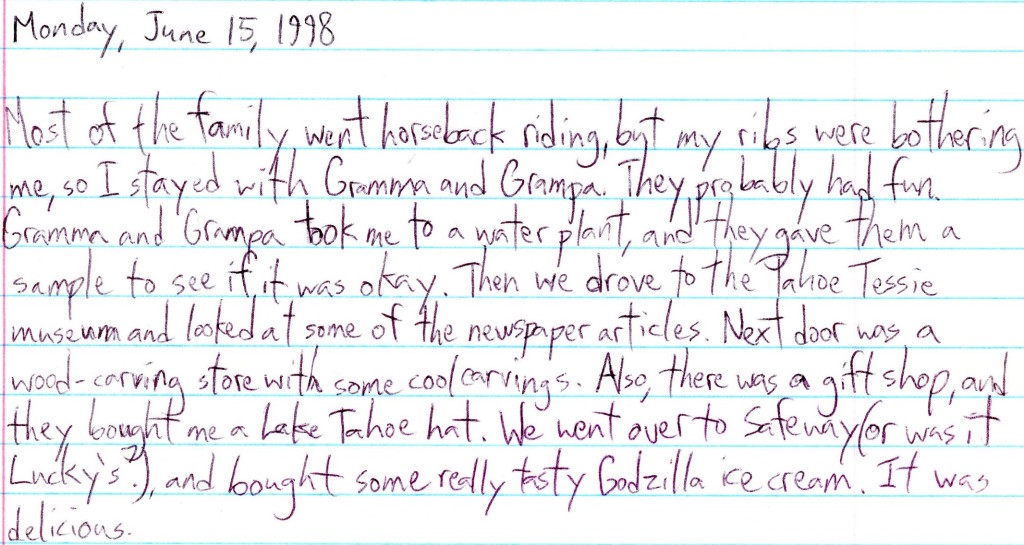 Monday, June 15, 1998
Most of the family went horseback riding, but my ribs were bothering
me, so I stayed with Gramma and Grampa. They probably had fun.
Gramma and Grampa took me to a water plant, and they gave them a
sample to see if it was okay. Then we drove to the Tahoe Tessie
museum and looked at some of the newspaper articles. Next door was a
wood-carving store with some cool carvings. Also, there was a gift shop, and
they bought me a Lake Tahoe hat. We went over to Safeway (or was it
Lucky's?), and bought some really tasty Godzilla ice cream. It was
delicious.